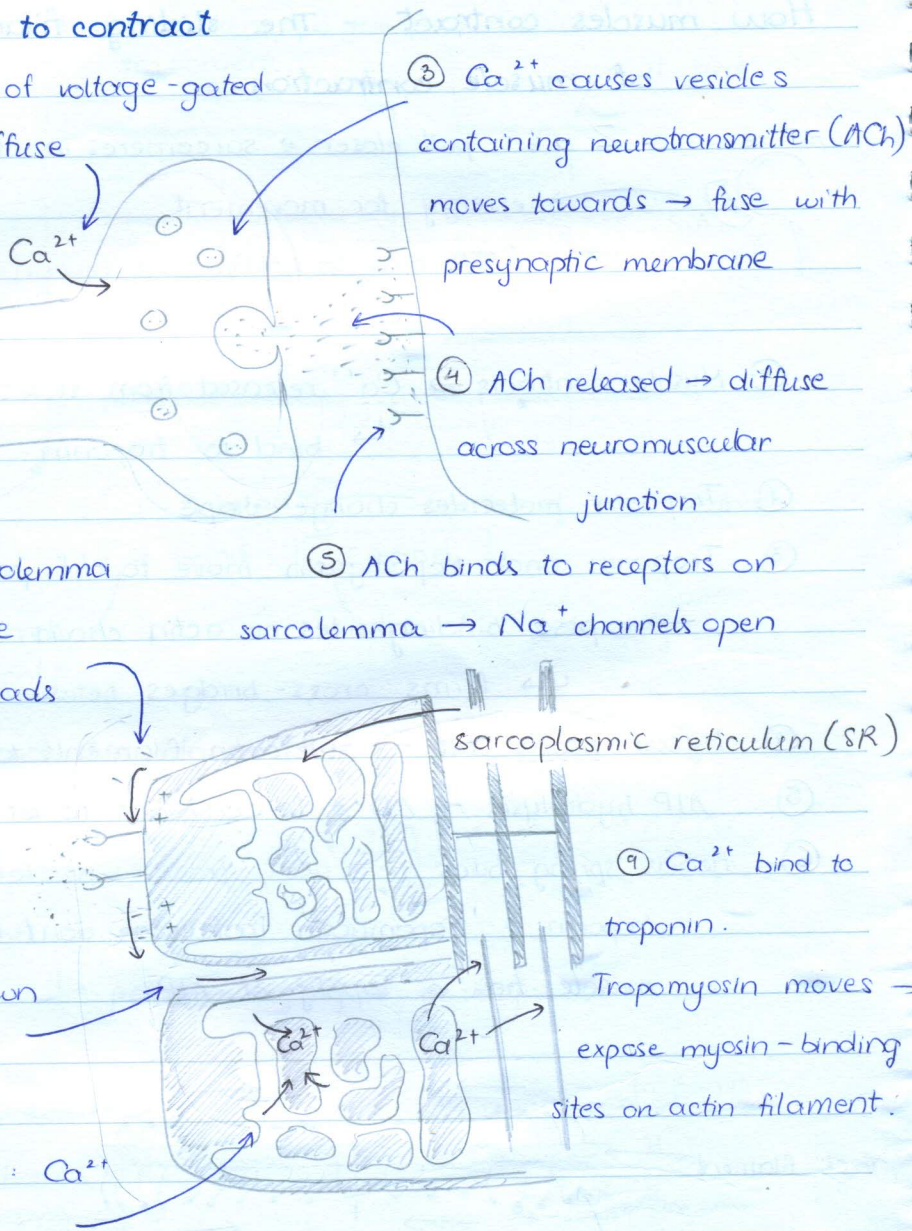 to contract
of voltage-gated
ffuse
Ca²⁺
③ Ca²⁺ causes vesicles
containing neurotransmitter (ACh)
moves towards → fuse with
presynaptic membrane
④ ACh released → diffuse
across neuromuscular
junction
⑤ ACh binds to receptors on
sarcolemma → Na⁺ channels open
olemma
e
ads
sarcoplasmic reticulum (SR)
⑨ Ca²⁺ bind to
troponin.
Tropomyosin moves →
expose myosin-binding
sites on actin filament.
on
Ca²⁺
Ca²⁺
: Ca²⁺